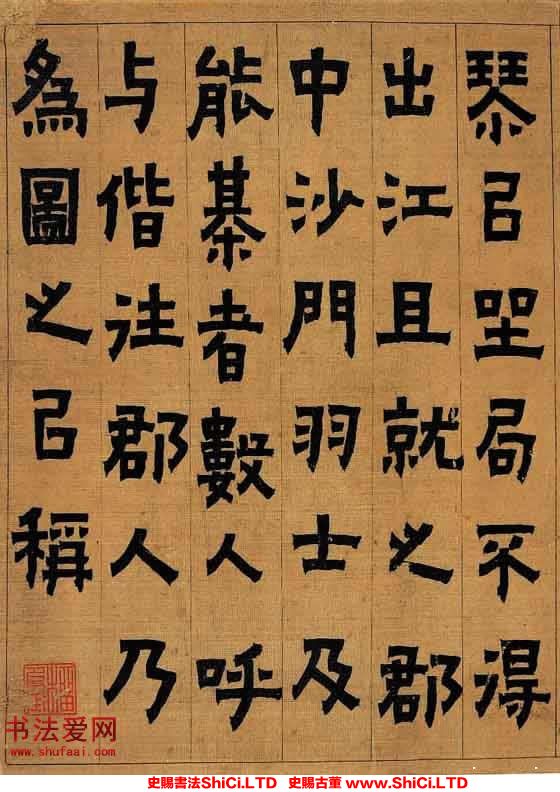 琹㠯坐局不得
出江且就之郡
中沙門羽士及
能棊者數人呼
与偕往郡人乃
為圖之㠯稱
书法爱网
www.shufaai.com
史賜書法ShiCi.LTD 史賜古董 www.ShiCi.LTD